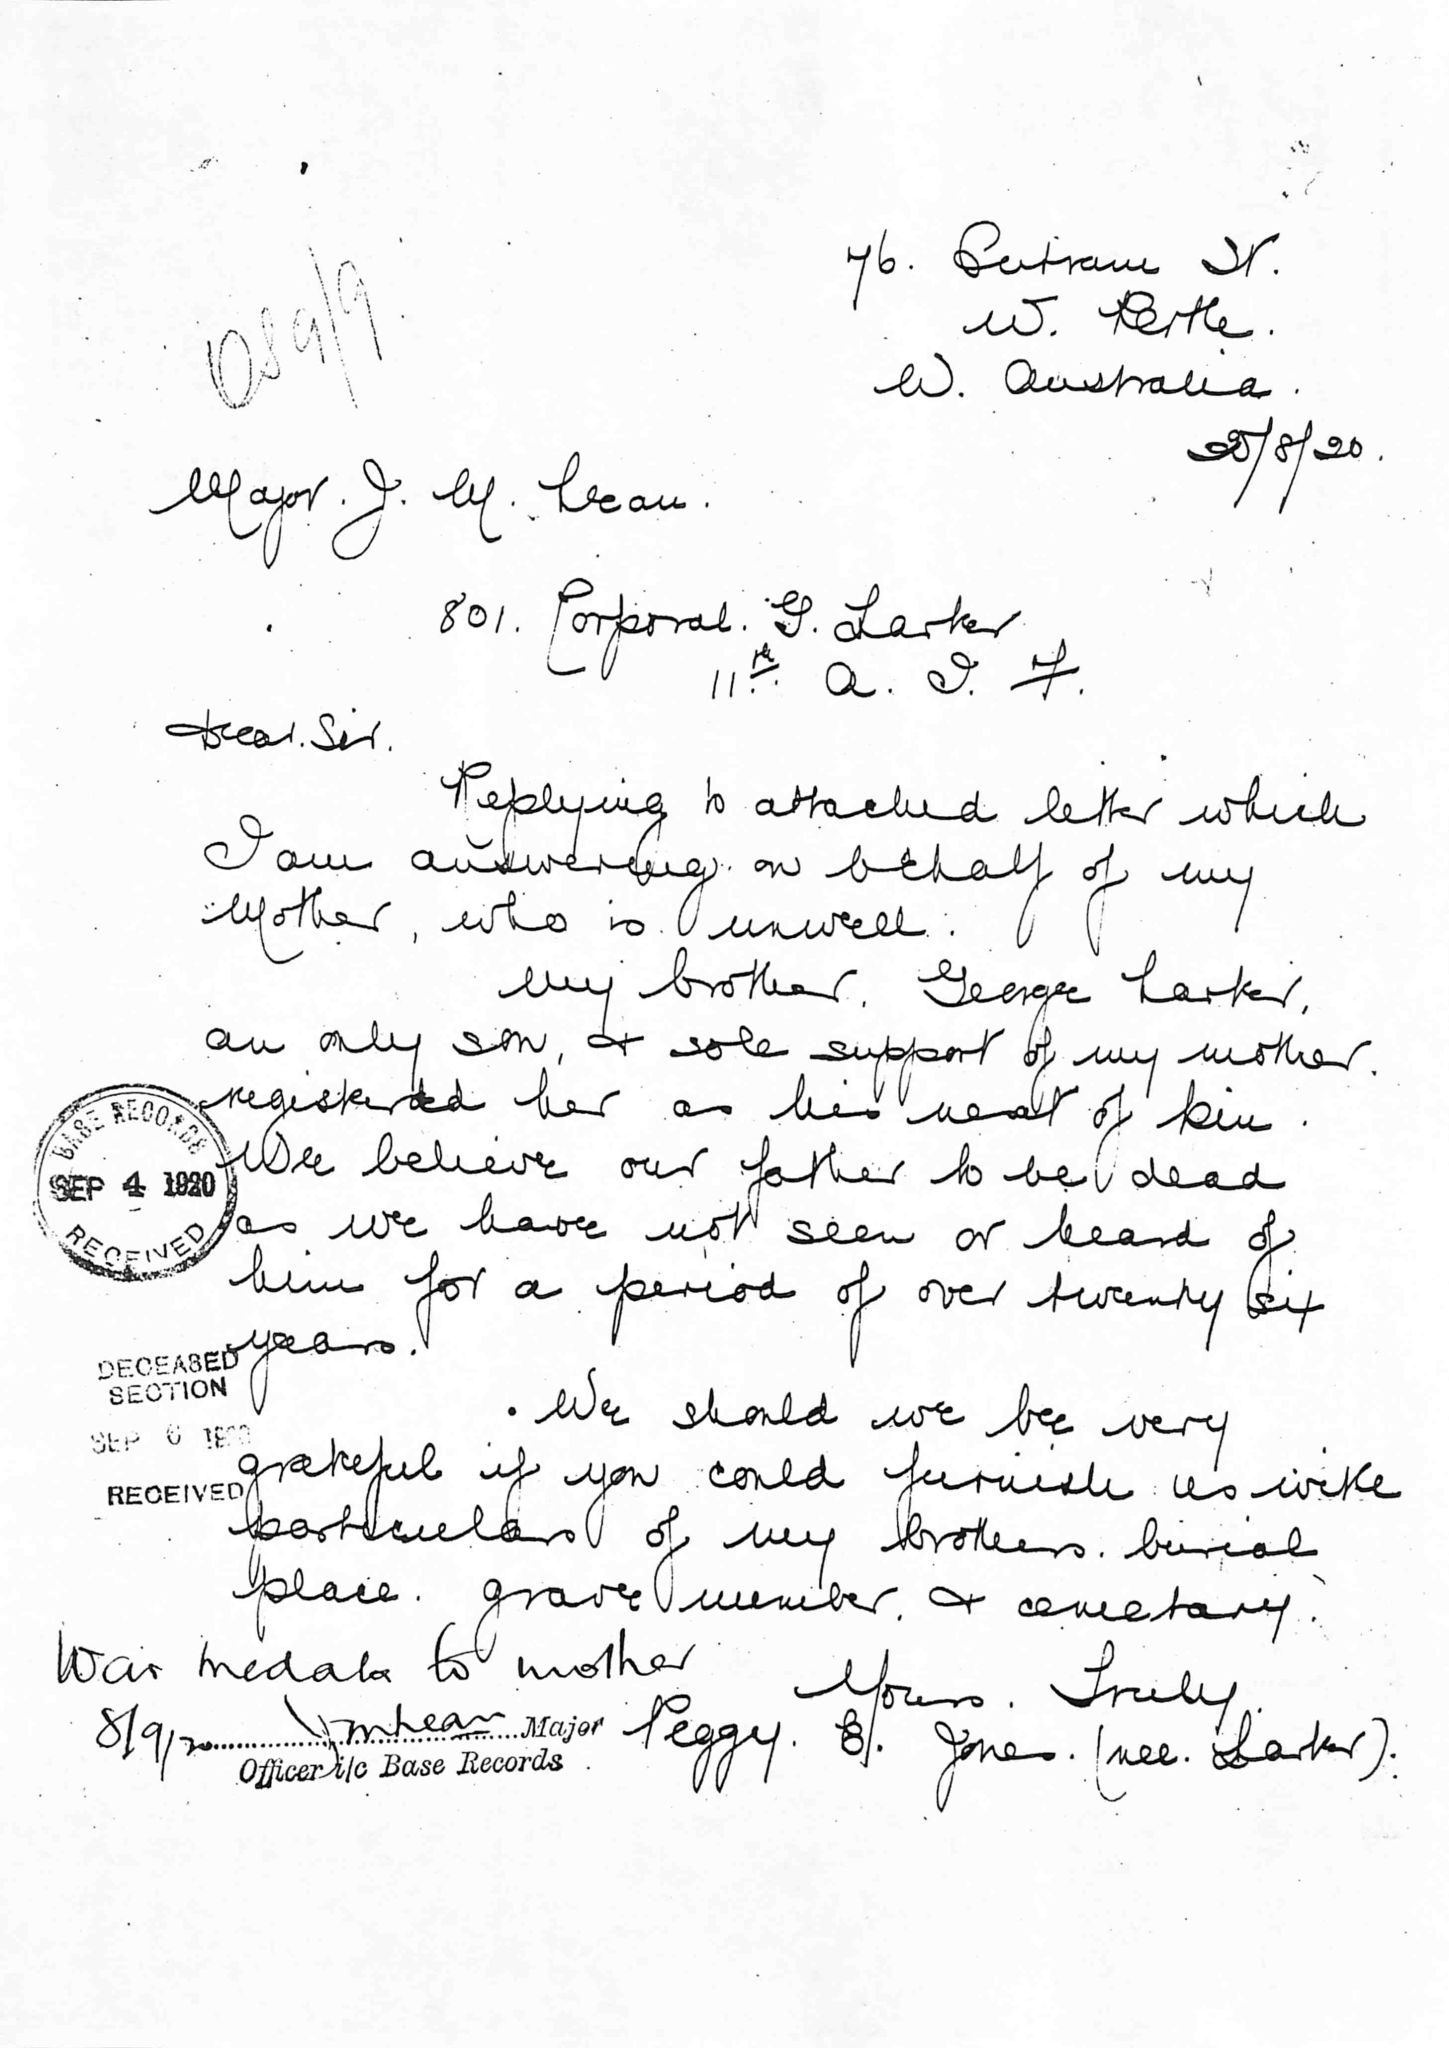 76. Bertram St.
W. Perth.
W. Australia.
25/8/20.
Major. J. M. Lean.
801. Corporal. G. Larker
11th. A. I. F.
Dear. Sir.
Replying to attached letter which
I am answering on behalf of my
Mother, who is unwell.
My brother, George Larker,
an only son, & sole support of my mother.
registered her as his next of kin.
We believe our father to be dead
as we have not seen or heard of
him for a period of over twenty six
years.
We should we be very
grateful if you could furnish us with
particulars of my brothers. burial
place. grave number, & cemetary.
Yours. Truly.
Peggy. E. Jones. (nee. Larker).
BASE RECORDS
SEP 4 1920
RECEIVED
DECEASED
SECTION
SEP 6 1920
RECEIVED
War medals to mother
8/9/20 JMLean Major
Officer i/c Base Records